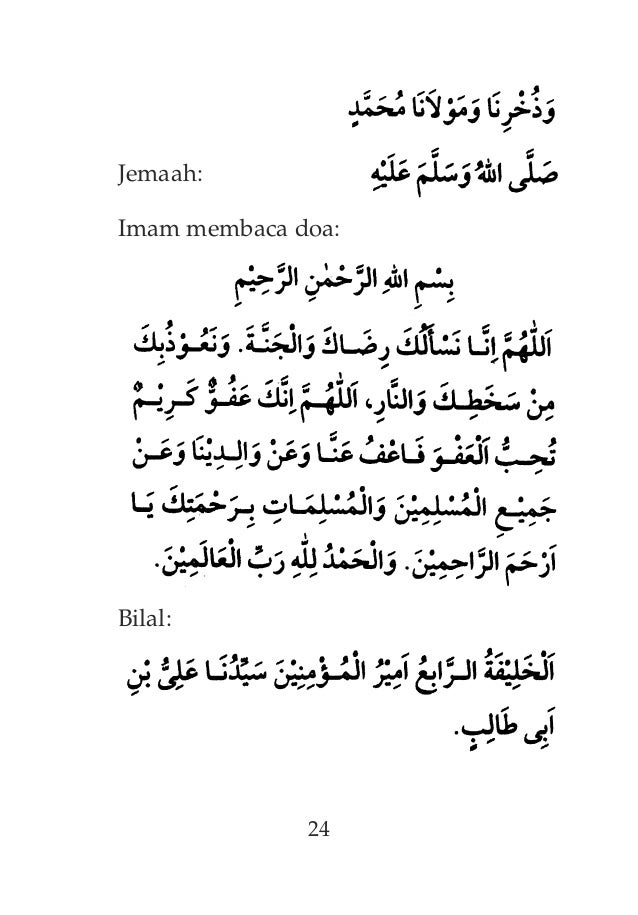 وَذُخْرِنَا وَمَوْلَانَا مُحَمَّدٍ
Jemaah: صَلَّى اللهُ وَسَلَّمَ عَلَيْهِ
Imam membaca doa:
بِسْمِ اللهِ الرَّحْمٰنِ الرَّحِيْمِ
اَللّٰهُمَّ اِنَّا نَسْأَلُكَ رِضَاكَ وَالْجَنَّةَ. وَنَعُوْذُبِكَ
مِنْ سَخَطِكَ وَالنَّارِ، اَللّٰهُمَّ اِنَّكَ عَفُوٌّ كَرِيْمٌ
تُحِبُّ الْعَفْوَ فَاعْفُ عَنَّا وَعَنْ وَالِدِيْنَا وَعَنْ
جَمِيْعِ الْمُسْلِمِيْنَ وَالْمُسْلِمَاتِ بِرَحْمَتِكَ يَا
اَرْحَمَ الرَّاحِمِيْنَ. وَالْحَمْدُ لِلّٰهِ رَبِّ الْعَالَمِيْنَ.
Bilal:
اَلْخَلِيْفَةُ الرَّابِعُ اَمِيْرُ الْمُؤْمِنِيْنَ سَيِّدُنَا عَلِيُّ بْنِ
اَبِى طَالِبٍ.
24